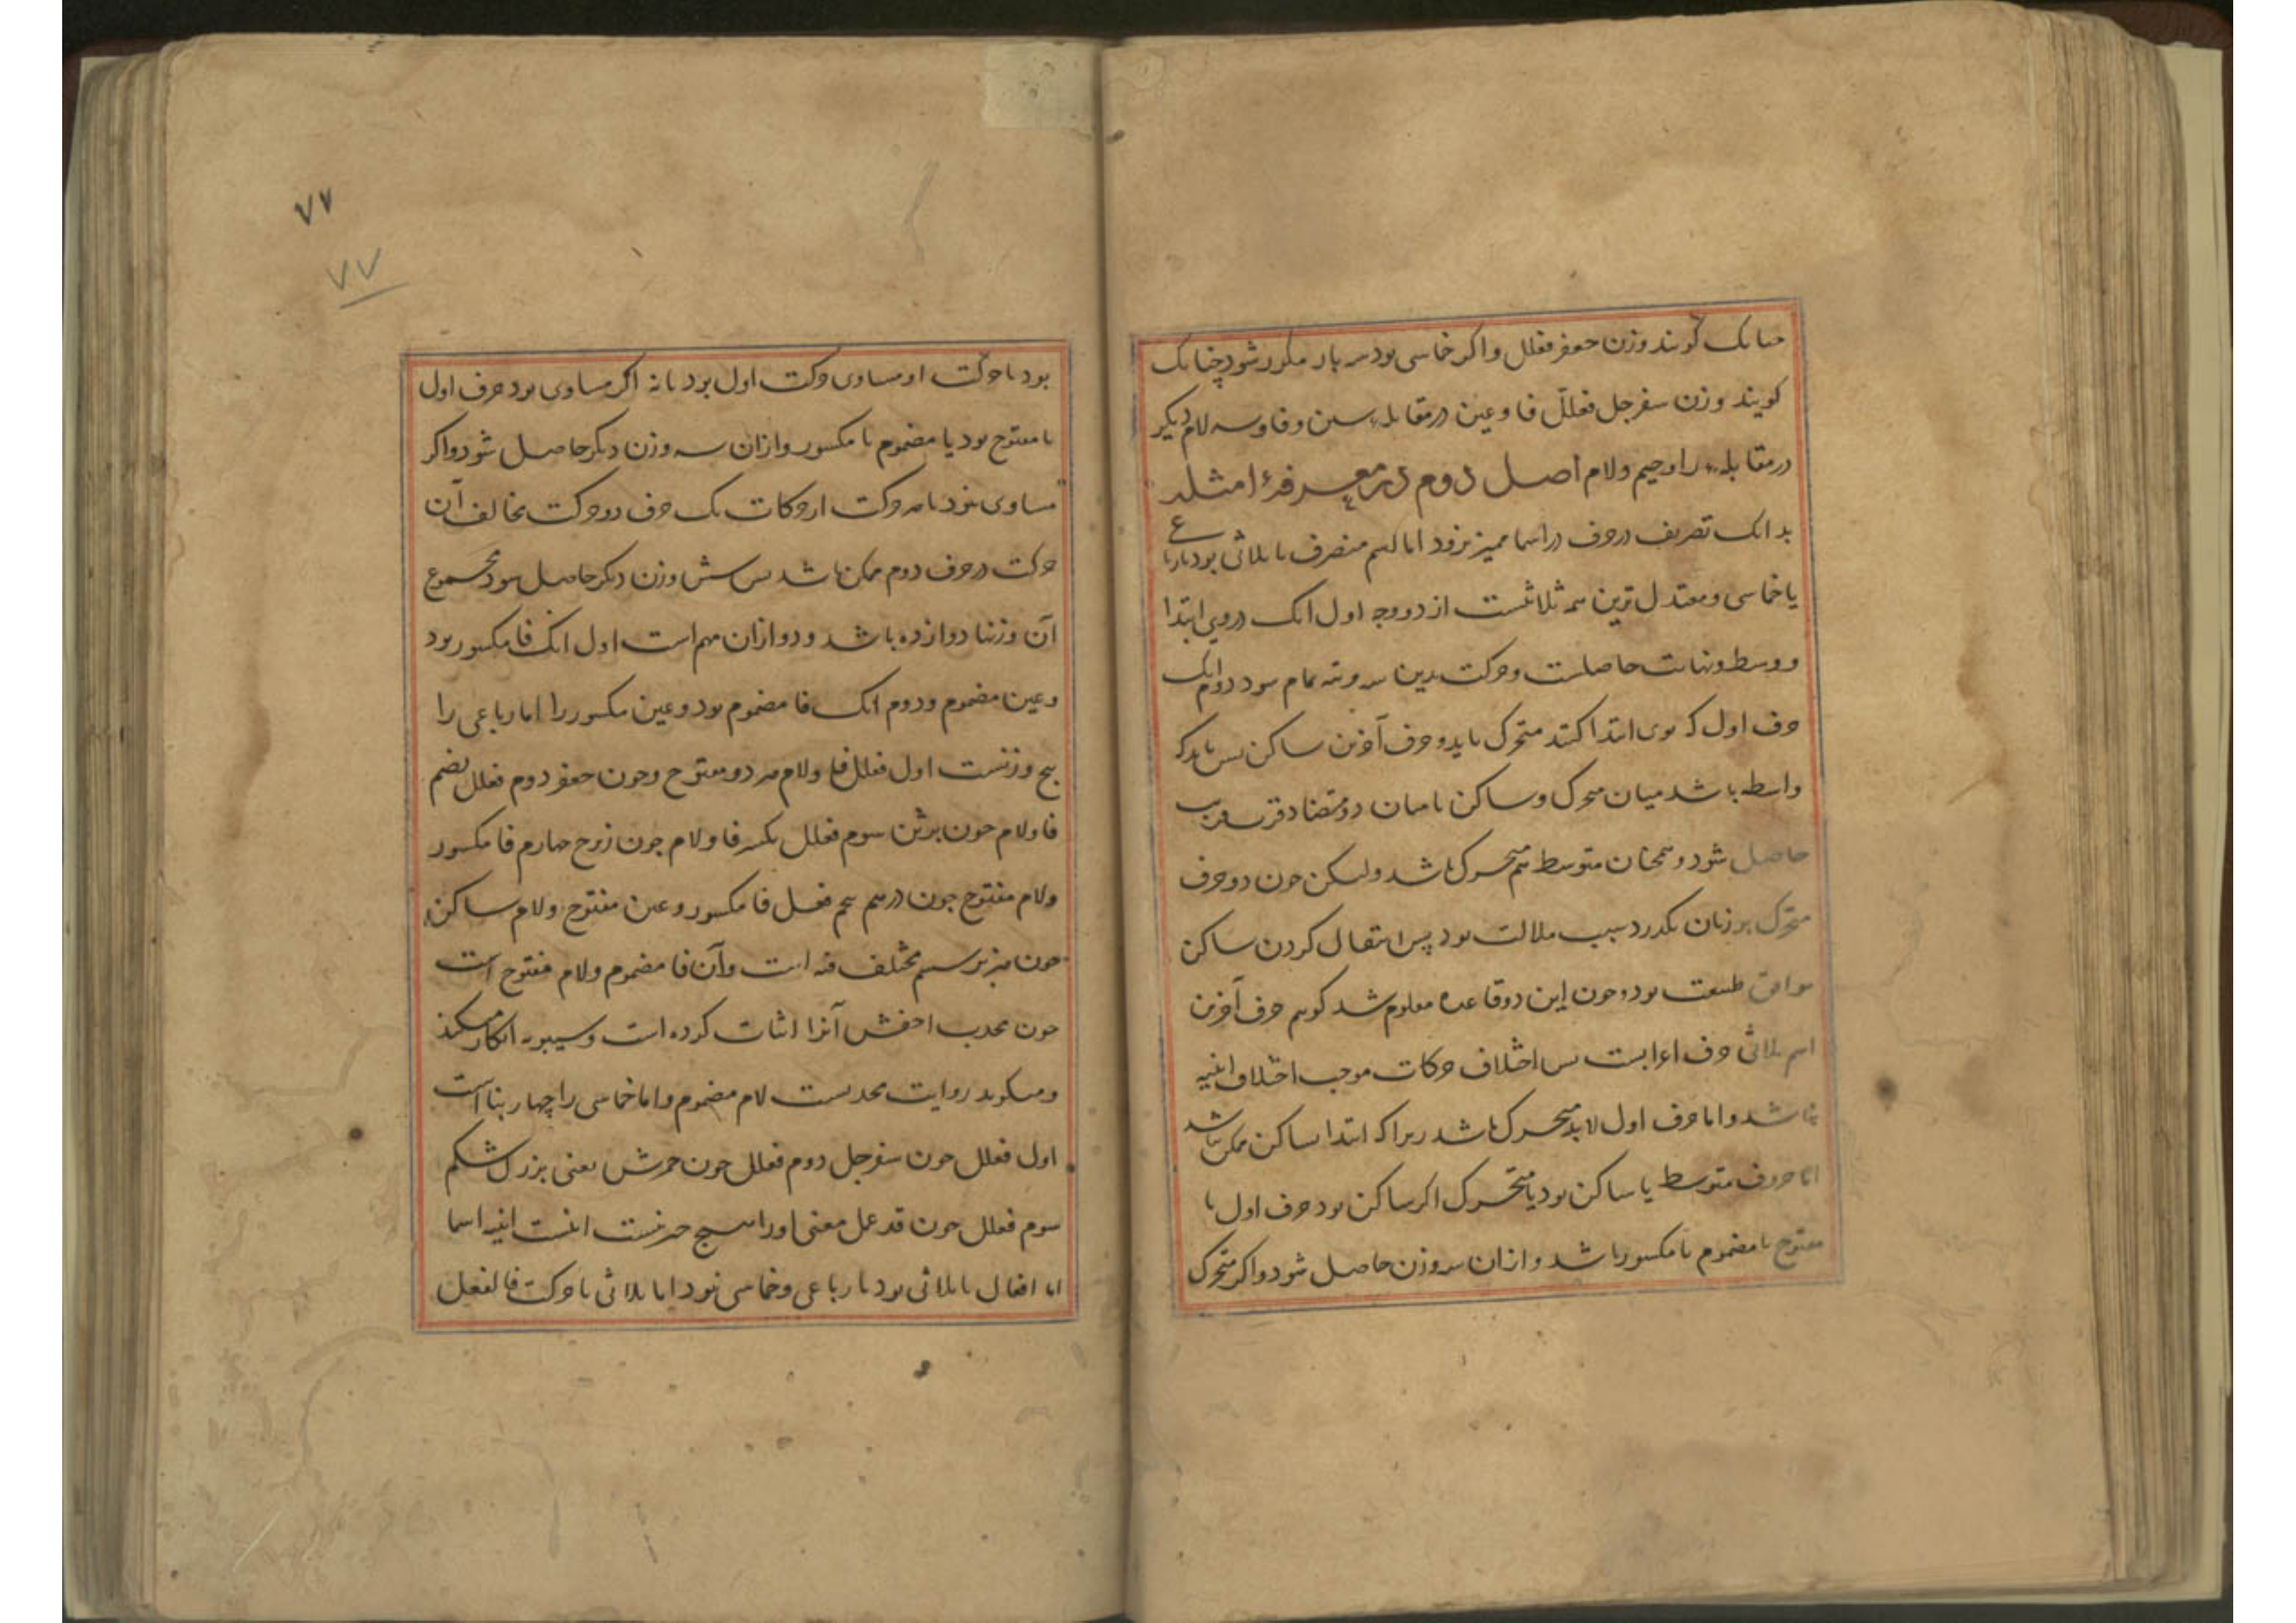 چنانک کویند وزن جعفر فعلل واکر خماسی بود سه بار مکرر شود چنانک
کویند وزن سفرجل فعلّل فا و عین در مقابلهٔ سین و فا وسه لام دیکر
در مقابلهٔ را و جیم ولام اصل دوم در معرفة امثله
بدانک تصریف در حرف در اسما ممیز نرود اما اسم متصرف یا ثلاثی بود یا رباعی
یا خماسی و معتدل ترین همه ثلاثیست از دو وجه اول انک دروی ابتدا
و وسط ونهایت حاصلست وحرکت بدین سه مرتبه تمام شود دوم انک
حرف اول که بوی ابتدا کنند متحرک باید و حرف آخرین ساکن پس باید که
واسطه باشد میان متحرک و ساکن تا میان دو متضاد قرب
حاصل شود و همچنان متوسط هم متحرک باشد ولیکن چون دو حرف
متحرک بر زبان بکذرد سبب ملالت بود پس انتقال کردن ساکن
موافق طبیعت بود و چون این دو قاعده معلوم شد کویم حرف آخرین
اسم ثلاثی حرف اعرابست پس اختلاف حرکات موجب اختلاف ابنیه
نباشد واما حرف اول لابد متحرک باشد زیرا که ابتدا بساکن ممکن نباشد
اما حرف متوسط یا ساکن بود یا متحرک اکر ساکن بود حرف اول یا
مفتوح یا مضموم یا مکسور باشد و ازان سه وزن حاصل شود واکر متحرک
٧٧
٧٧
بود یا حرکت او مساوی حرکت اول بود یا نه اکر مساوی بود حرف اول
یا مفتوح بود یا مضموم یا مکسور وازان سه وزن دیکر حاصل شود واکر
مساوی نبود با هر حرکت از حرکات یک حرف دو حرکت مخالف آن
حرکت در حرف دوم ممکن باشد پس شش وزن دیکر حاصل شود مجموع
آن وزنها دوازده باشد و دو ازان مهم است اول انک فا مکسور بود
وعین مضموم ودوم انک فا مضموم بود وعین مکسور را اما رباعی را
پنج وزنست اول فعلل فا ولام هر دو مفتوح وچون جعفر دوم فعلل بضم
فا ولام چون برثن سوم فعلل بکسر فا ولام چون زبرج چهارم فا مکسور
ولام مفتوح چون درهم پنجم فعل فا مکسور وعین مفتوح ولام ساکن
چون هزبر ششم مختلف فیه است وآن فا مضموم ولام مفتوح است
چون جخدب اخفش آنرا اثبات کرده است وسیبویه انکار میکند
ومیکوید روایت جخدبست لام مضموم واما خماسی را چهار بنا است
اول فعلل چون سفرجل دوم فعلل چون جحمرش یعنی بزرک شکم
سوم فعلل چون قذعمل معنی او را هیچ چیز نیست اینست ابنیه اسما
اما افعال یا ثلاثی بود یا رباعی وخماسی نبود اما ثلاثی با حرکت فا لفعل